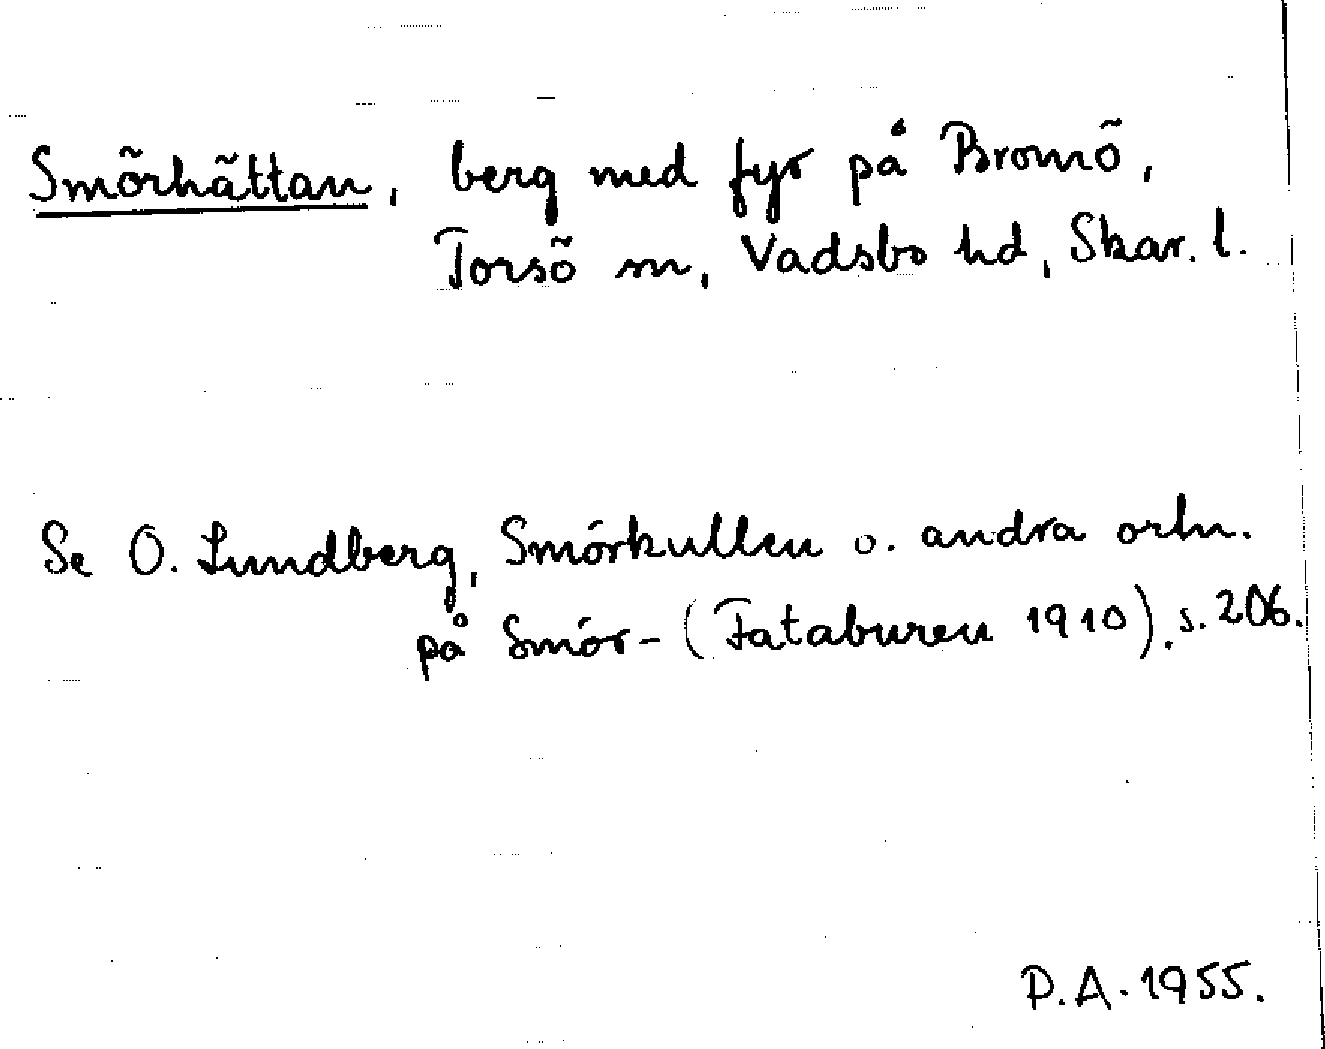 Smörhättan, berg med fyr på Bromö,
Torsö sn, Vadsbo hd, Skar. l.
Se O. Lundberg, Smörkullen o. andra ortn.
på Smör- (Fataburen 1910), s. 206.
P.A. 1955.